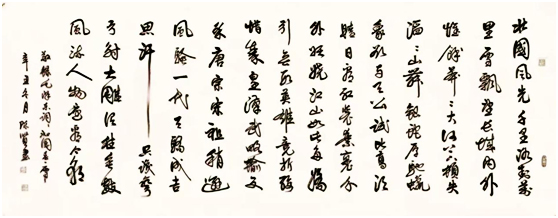 北國風光千里冰封萬
里雪飄望長城內外
惟餘莽〻大河上下頓失
滔〻山舞銀蛇原馳蠟
象欲與天公試比高須
晴日看紅裝素裹分
外妖嬈江山如此多嬌
引無數英雄競折腰
惜秦皇漢武略輸文
采唐宗宋祖稍遜
風騷一代天驕成吉
思汗只識彎
弓射大雕俱往矣數
風流人物還看今朝
敬錄毛澤東詞沁園春雪
辛丑冬月